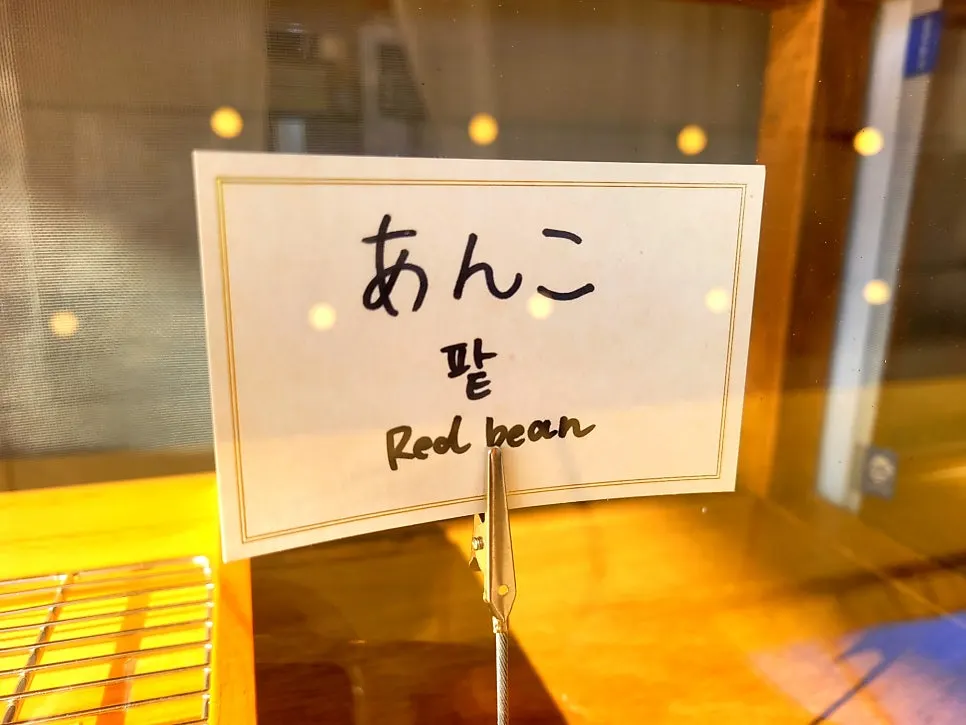 あんこ
팥
Red bean